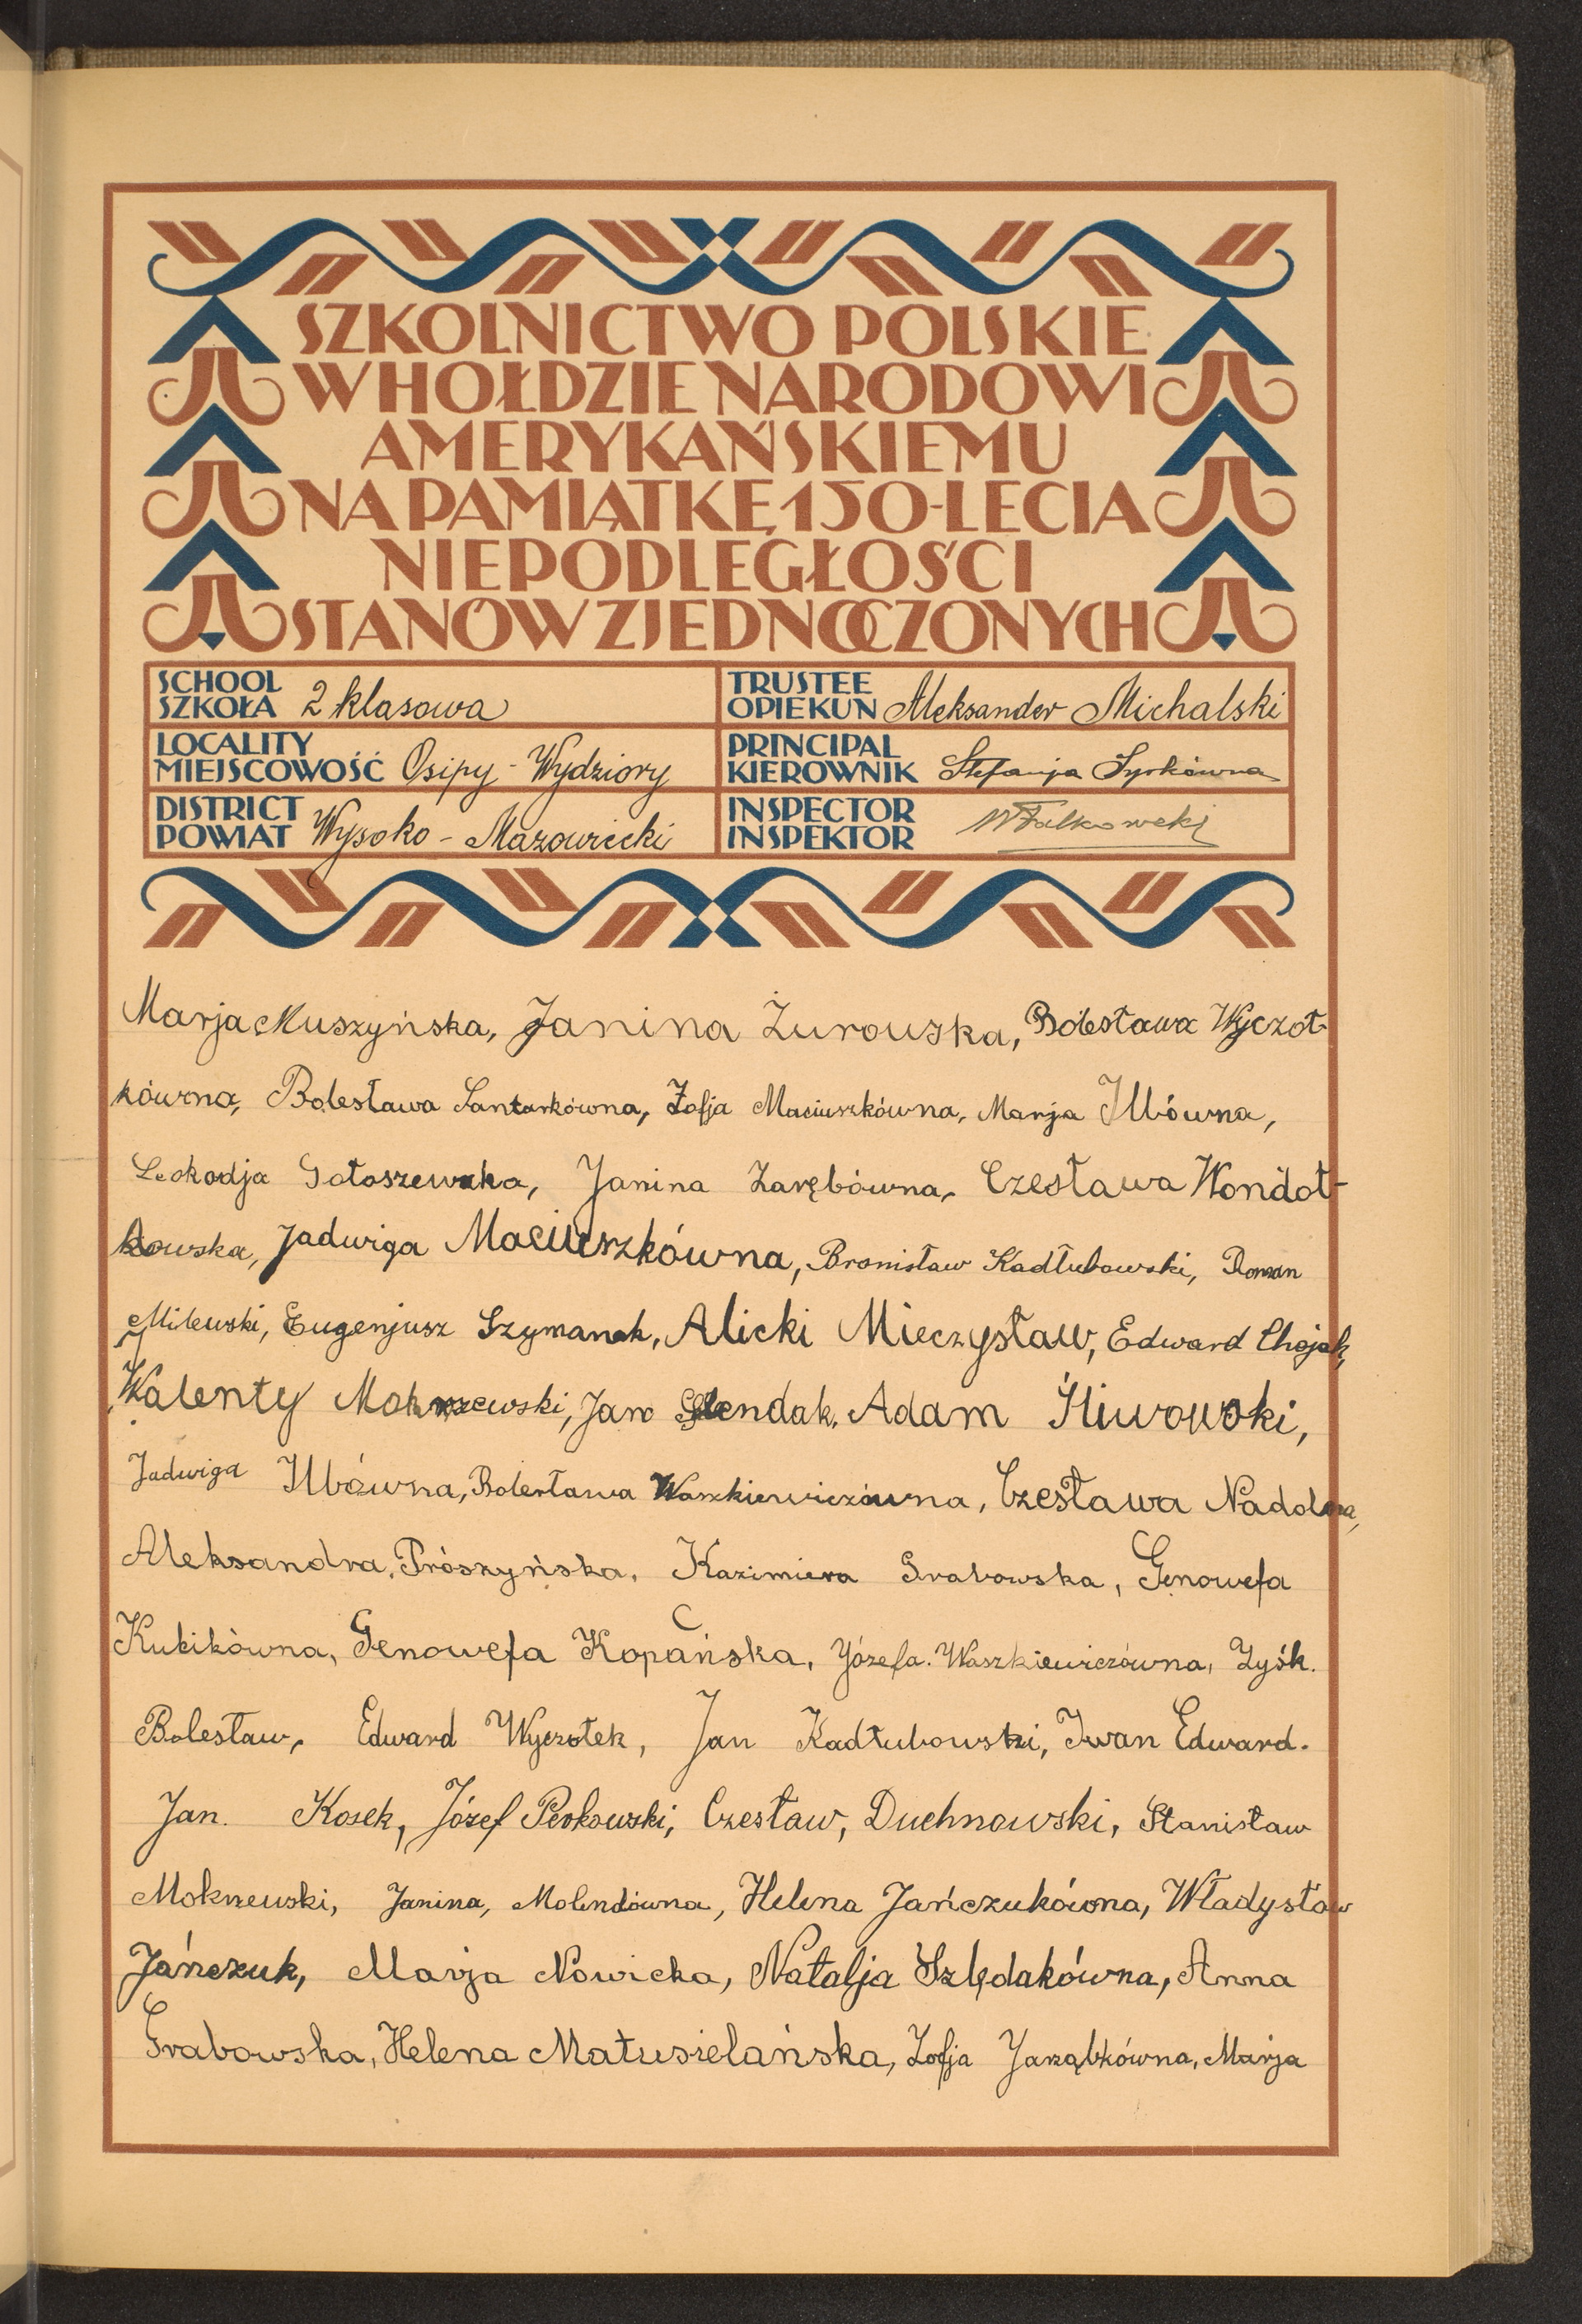 SZKOLNICTWO POLSKIE
W HOŁDZIE NARODOWI
AMERYKAŃSKIEMU
NA PAMIĄTKĘ 150-LECIA
NIEPODLEGŁOŚCI
STANÓW ZJEDNOCZONYCH
SCHOOL
SZKOŁA 2 klasowa
TRUSTEE
OPIEKUN Aleksander Michalski
LOCALITY
MIEJSCOWOŚĆ Osipy - Wydziory
PRINCIPAL
KIEROWNIK Stefanja Syrkówna
DISTRICT
POWIAT Wysoko - Mazowiecki
INSPECTOR
INSPEKTOR WFalkowski
Marja Muszyńska, Janina Żurowska, Bolesława Wyczoł-
kówna, Bolesława Santarkówna, Zofja Maciuszkówna, Marja Illówna,
Leokadja Gołaszewska, Janina Zarębówna, Czesława Wondoł-
kowska, Jadwiga Maciuszkówna, Bronisław Kadłubowski, Roman
Milewski, Eugenjusz Szymanek, Alicki Mieczysław, Edward Chojak,
Walenty Mokrzewski, Jan Slendak, Adam Śliwowski,
Jadwiga Illówna, Bolesława Waszkiewiczówna, Czesława Nadolna,
Aleksandra, Prószyńska, Kazimiera Grabowska, Genowefa
Kubikówna, Genowefa Kopańska, Józefa. Waszkiewiczówna, Zyśk.
Bolesław, Edward Wyczołek, Jan Kadłubowski, Iwan Edward.
Jan. Kosek, Józef Perkowski, Czesław, Duchnowski, Stanisław
Mokrzewski, Janina, Molendówna, Helena Jańczukówna, Władysław
Jańczuk, Marja Nowicka, Natalja Szlędakówna, Anna
Grabowska, Helena Matusielańska, Zofja Jarząbkówna, Marja